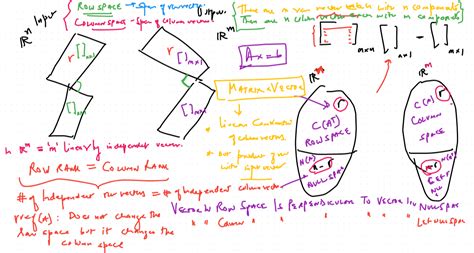 Input
ROW SPACE → Span of row vectors
COLUMN SPACE → Span of column vectors
Output
There are m row vectors each with n components
There are n column vectors each with m components
ℝⁿ
ℝᵐ
r
[ ]n×1
[ ]n×1
r
[ ]m×1
[ ]m×1
Ax = b
[ ]m×n [ ]n×1 = [ ]m×1
MATRIX × VECTOR
* Linear Combination of column vectors.
* Dot product of row with
ℝⁿ
r
C(Aᵀ)
ROW SPACE
N(A)
n-r
NULL SPACE
ℝᵐ
r
C(A)
COLUMN
SPACE
N(Aᵀ)
m-r
LEFT
NULL
In ℝᵐ = 'm' linearly independent vectors.
ROW RANK = COLUMN RANK
# of Independent row vectors = # of independent column vectors
rref(A): Does not change the
row space but it changes the
column space
VECTOR IN ROW SPACE IS PERPENDICULAR TO VECTOR IN NULLSPACE
" " Column " " " " " Left NULLSPACE